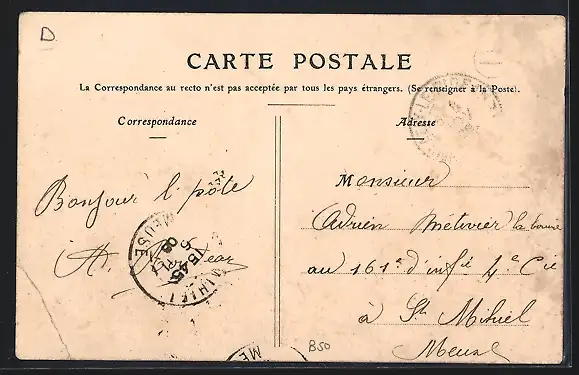 D
CARTE POSTALE
La Correspondance au recto n'est pas acceptée par tous les pays étrangers. (Se renseigner à la Poste).
Correspondance
Adresse
Bonjour l'pôte
A.
MEUSE
15 45
08
MIHIEL
Monsieur
Adrien Métivier
au 161e d'infie 4e Cie
à St Mihiel
Meuse
ME
B50